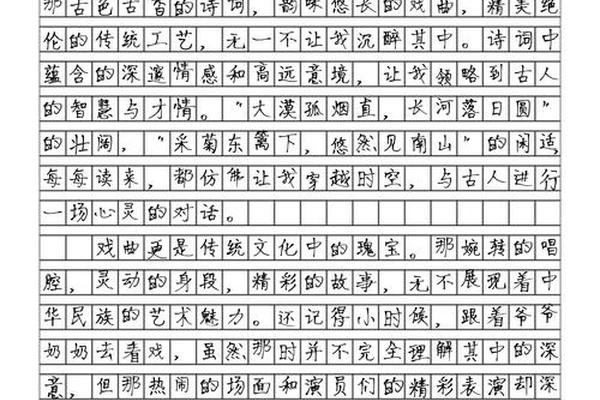 那古色古香的诗词，韵味悠长的戏曲，精美绝
伦的传统工艺，无一不让我沉醉其中。诗词中
蕴含的深邃情感和高远意境，让我领略到古人
的智慧与才情。“大漠孤烟直，长河落日圆”
的壮阔，“采菊东篱下，悠然见南山”的闲适，
每每读来，都仿佛让我穿越时空，与古人进行
一场心灵的对话。
戏曲更是传统文化中的瑰宝。那婉转的唱
腔，灵动的身段，精彩的故事，无不展现着中
华民族的艺术魅力。还记得小时候，跟着爷爷
奶奶去看戏，虽然那时并不完全理解其中的深
意，但那热闹的场面和演员们的精彩表演却深